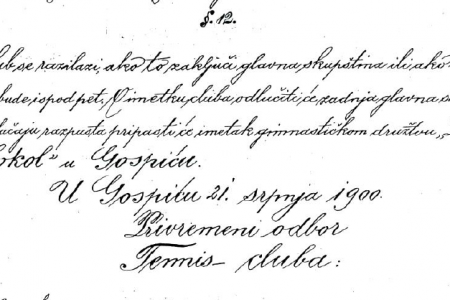 §. 12.
lub se razilazi, ako to zaključi glavna skupština ili ako
bude ispod pet. O imetku cluba odlučiti će zadnja glavna s
učaju razpusta pripasti će imetak gimnastičkom družtvu „
okol" u Gospiću.
U Gospiću 21. srpnja 1900.
Privremeni odbor
Tennis-cluba: